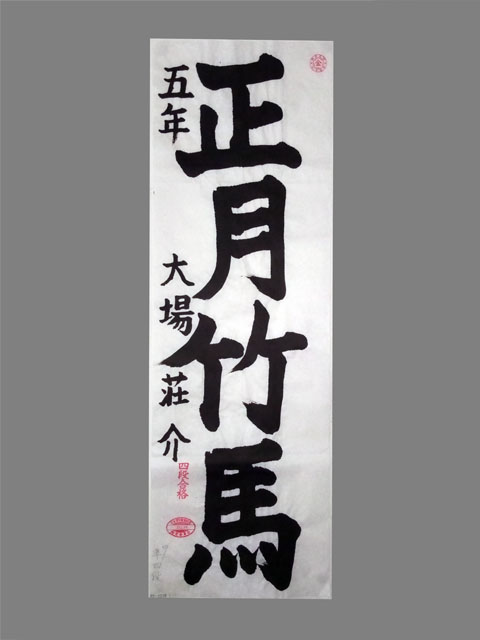 正月竹馬
五年 大場荘介
四段合格